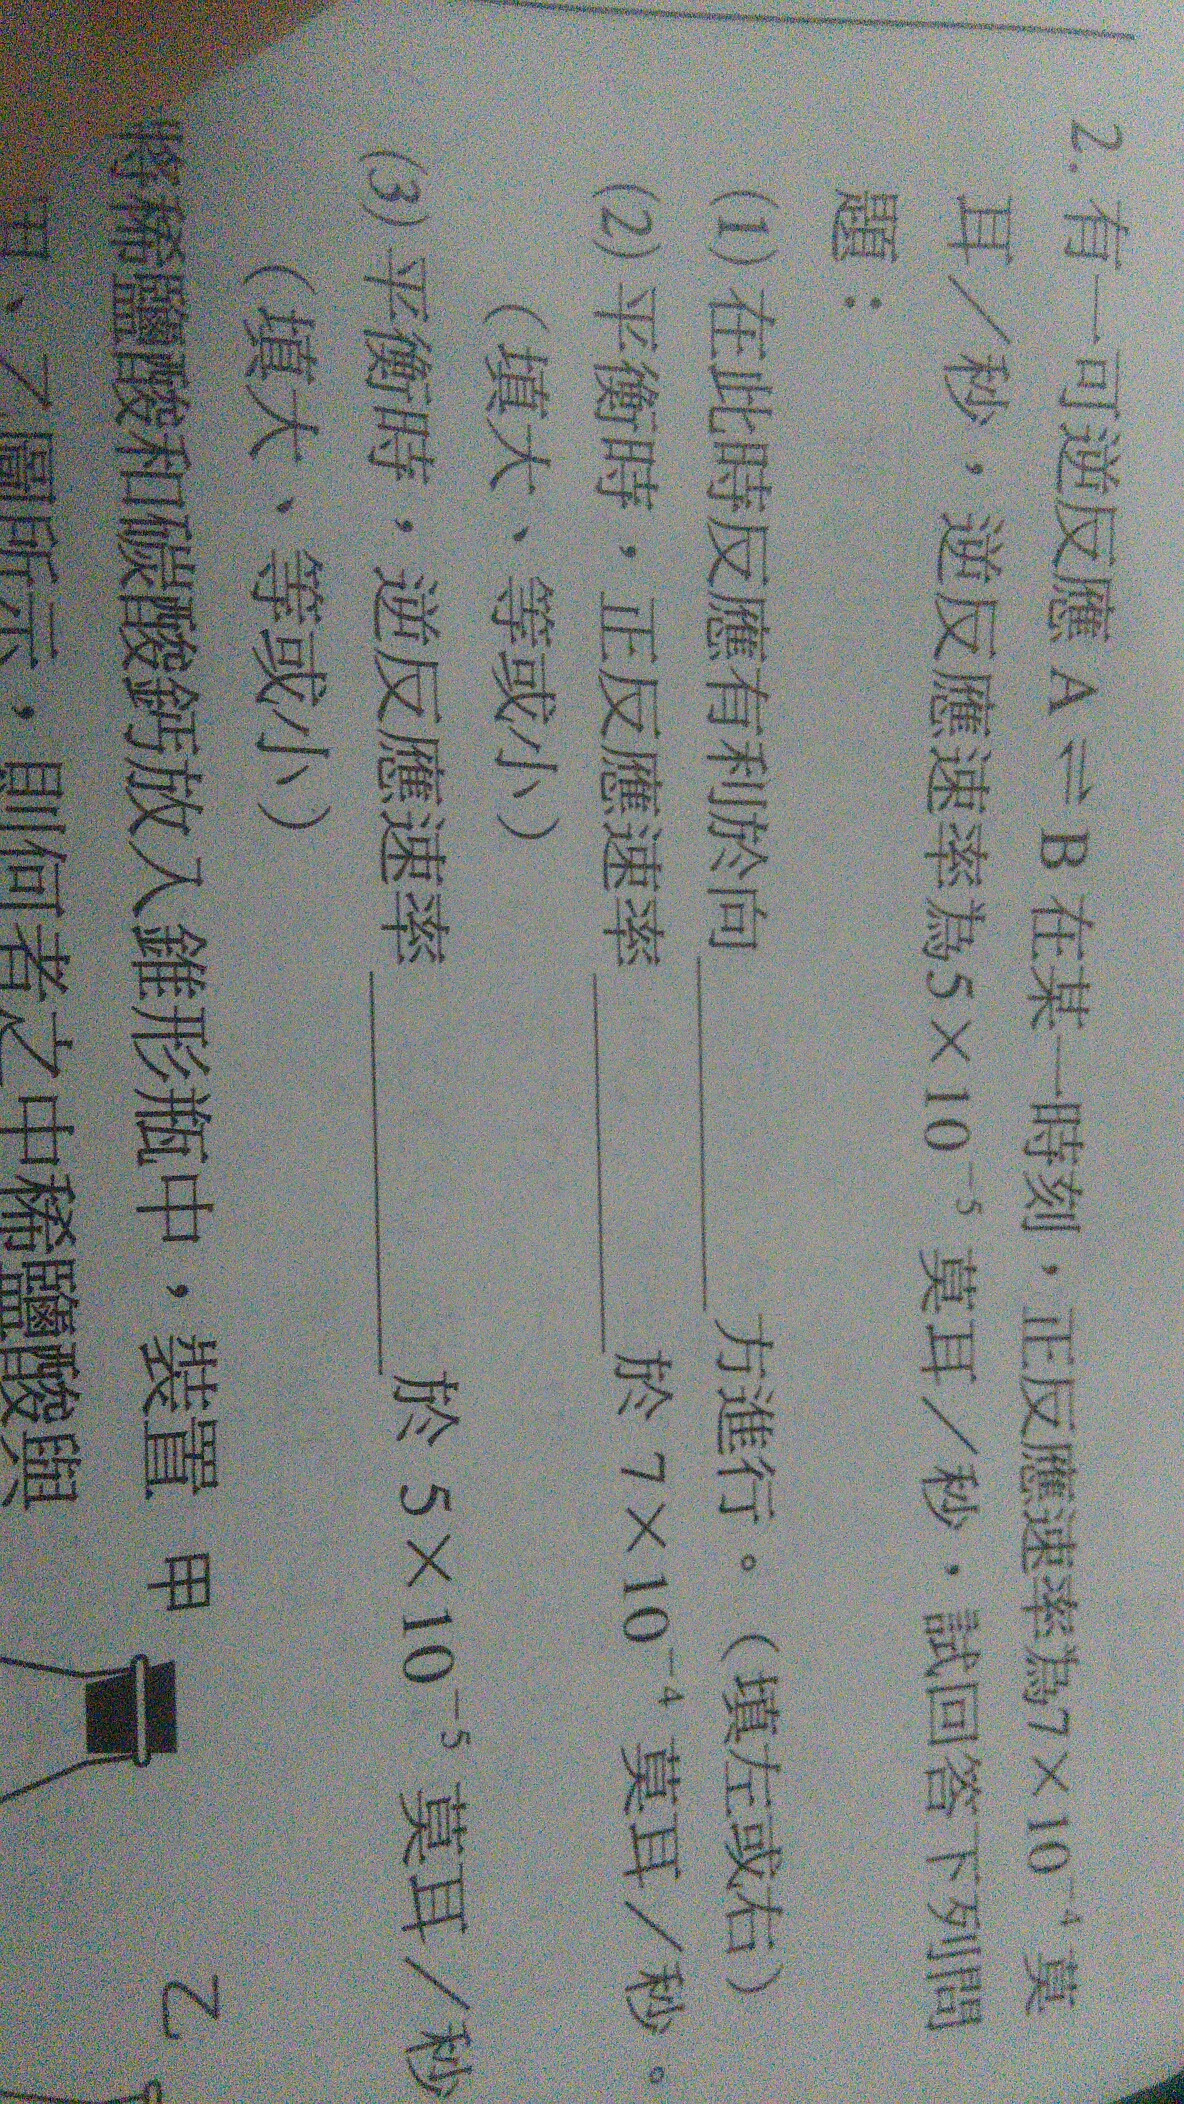 2. 有一可逆反應 A ⇌ B 在某一時刻，正反應速率為7×10⁻⁴ 莫
耳／秒，逆反應速率為5×10⁻⁵ 莫耳／秒，試回答下列問
題：
(1) 在此時反應有利於向＿＿＿＿方進行。（填左或右）
(2) 平衡時，正反應速率＿＿＿＿於 7×10⁻⁴ 莫耳／秒。
（填大、等或小）
(3) 平衡時，逆反應速率＿＿＿＿於 5×10⁻⁵ 莫耳／秒
（填大、等或小）
將稀鹽酸和碳酸鈣放入錐形瓶中，裝置
甲、乙圖所示，則何者之中稀鹽酸與
甲
乙